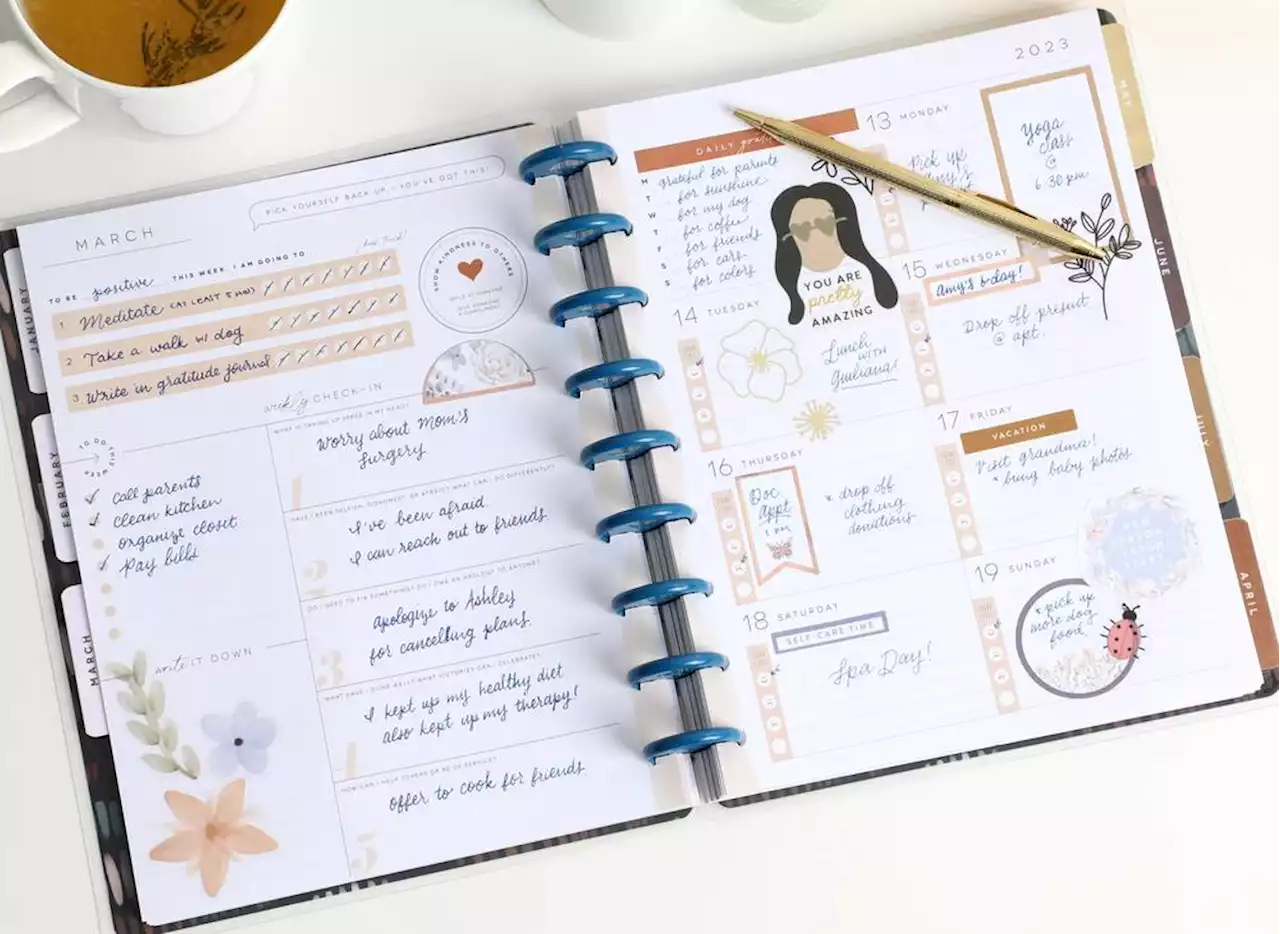 PICK YOURSELF BACK UP - YOU'VE GOT THIS!
MARCH
TO BE positive THIS WEEK, I AM GOING TO
1 Meditate (AT LEAST 5 MIN)
2 Take a walk w/ dog
3 Write in gratitude journal
SHOW KINDNESS TO OTHERS
weekly CHECK-IN
TO DO
THIS WEEK
call parents
clean kitchen
organize closet
Pay bills
write IT DOWN
WHAT IS TAKING UP SPACE IN MY HEART?
1
Worry about Mom's
surgery
2
I've been afraid.
I can reach out to friends.
DO I NEED TO FIX SOMETHING? DO I OWE AN APOLOGY TO ANYONE?
3
Apologize to Ashley
for cancelling plans.
WHAT HAVE I DONE WELL? WHAT VICTORIES CAN I CELEBRATE?
4
I kept up my healthy diet
also kept up my therapy!
HOW CAN I HELP OTHERS OR BE OF SERVICE?
5
offer to cook for friends.
JANUARY
FEBRUARY
MARCH
2023
DAILY
M grateful for parents
T for sunshine
W for my dog
T for coffee
F for friends
S for cars
S for colors
YOU ARE
pretty
AMAZING
13 MONDAY
Pick up
Yoga
class
@
6:30 pm
14 TUESDAY
Lunch
WITH
Giuliana!
15 WEDNESDAY
Amy's b-day!
Drop off present
@ apt.
16 THURSDAY
Doc
Appt
1 PM
* drop off
clothing
donations
17 FRIDAY
VACATION
Visit grandma!
* bring baby photos
18 SATURDAY
SELF-CARE TIME
Spa Day!
19 SUNDAY
* pick up
more dog
food
MAY
JUNE
JULY
APRIL